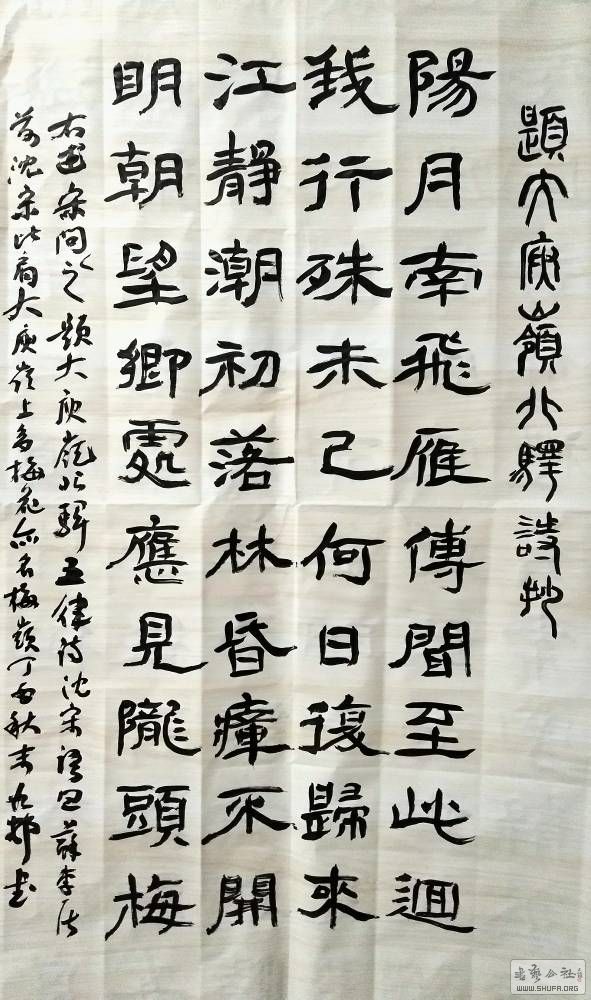 題大庾嶺北驛詩抄
陽月南飛雁傳聞至此迴
我行殊未已何日復歸來
江靜潮初落林昏瘴不開
明朝望鄉處應見隴頭梅
右書宋問之題大庾嶺北驛五律詩沈宋語曰蘇李居
前沈宋比肩大庾嶺上多梅花亦名梅嶺丁酉秋末書
書藝公社
WWW.SHUFA.ORG